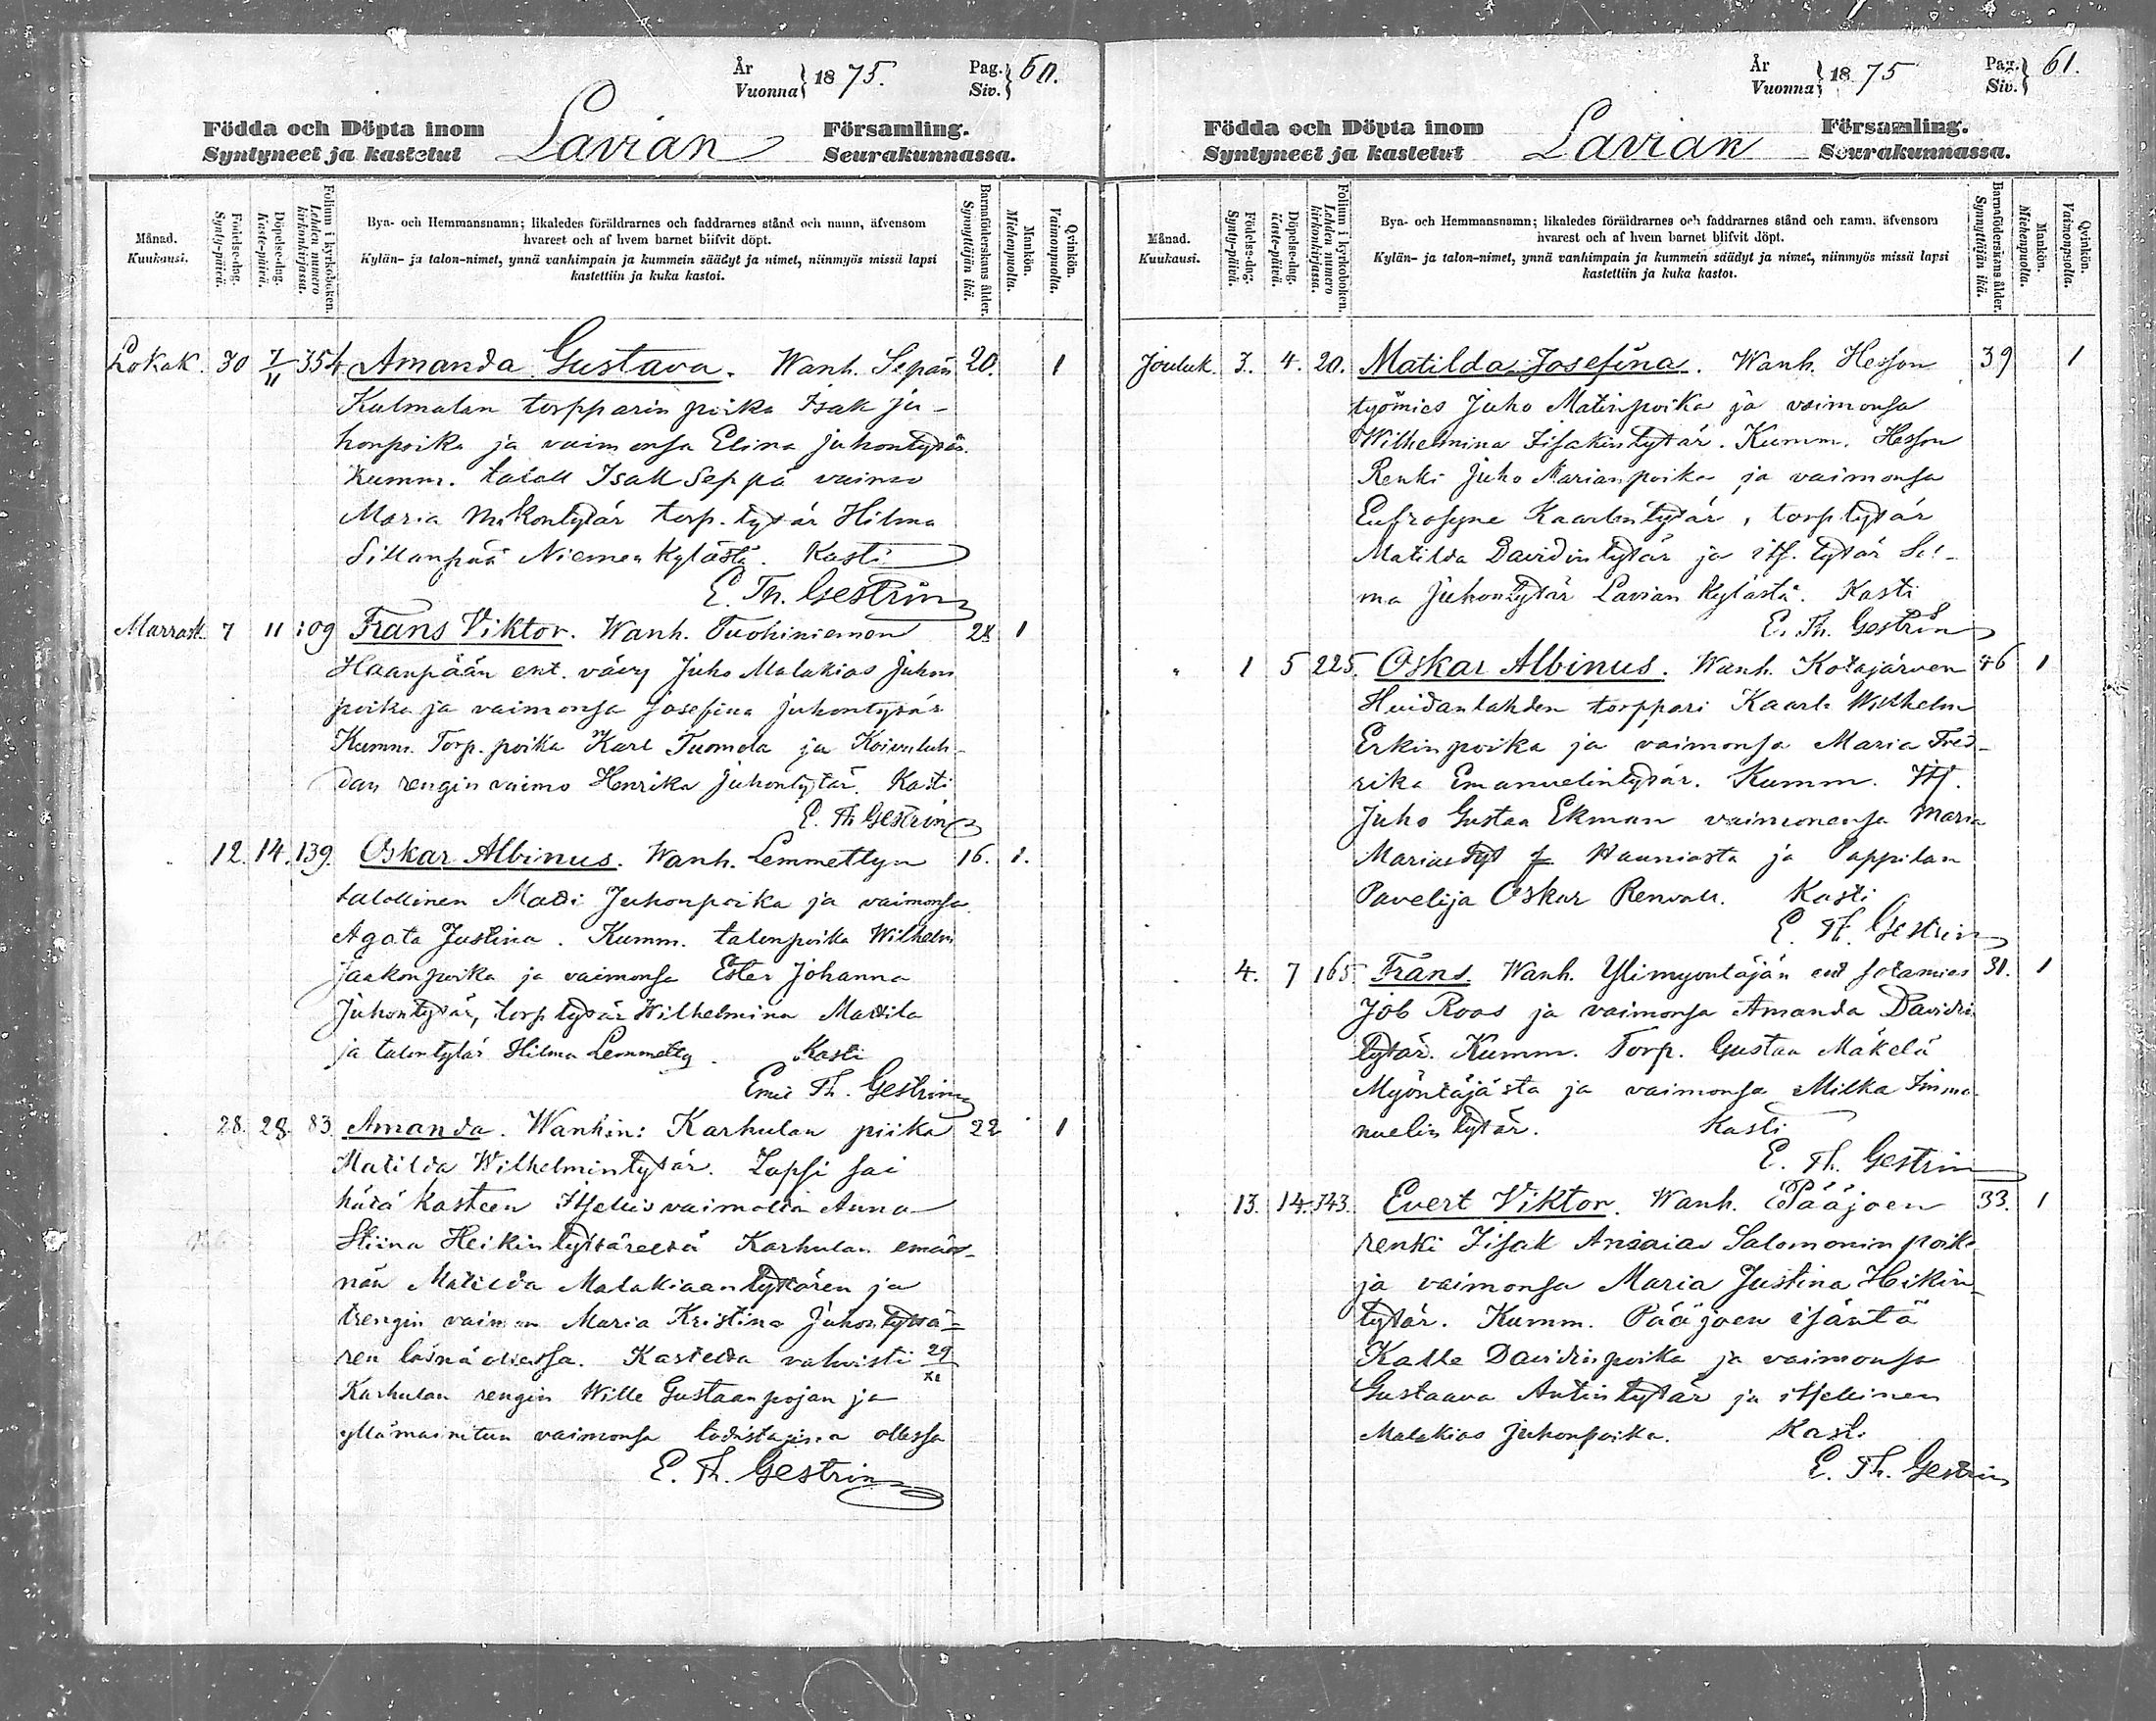 År
Vuonna } 1875.
Pag.
Siv. } 60.
Födda och Döpta inom
Syntyneet ja kastetut
Lavian
Församling.
Seurakunnassa.
Månad.
Kuukausi.
Födelse-dag.
Synty-päivä.
Döpelse-dag.
Kaste-päivä.
Folium i kyrkoboken.
Lehden numero kirkonkirjassa.
Bya- och Hemmansnamn; likaledes föräldrarnes och faddrarnes stånd och namn, äfvensom
hvarest och af hvem barnet blifvit döpt.
Kylän- ja talon-nimet, ynnä vanhimpain ja kummein säädyt ja nimet, niinmyös missä lapsi
kastettiin ja kuka kastoi.
Barnaföderskans ålder.
Synnyttäjän ikä.
Mankön.
Miehenpuolta.
Qvinkön.
Vaimonpuolta.
Lokak. 30 7/11 354 Amanda Gustava. Wanh. Sepän 20. 1
Kulmalan torpparin poika Isak Ju-
honpoika ja vaimonsa Elina Juhontytär.
Kumm. taloll Isak Seppä vaimo
Maria Mikontytär torp. tytär Hilma
Sillanpää Niemen kylästä. Kasti
E. Th. Gestrin
Marrask. 7 11 109 Frans Viktor. Wanh. Tuohiniemen 28 1
Haanpään ent. vävy Juho Malakias Juhon
poika ja vaimonsa Josefina Juhontytär
Kumm. Torp. poika Karl Tuomola ja Koivuluh-
dan rengin vaimo Henrika Juhontytär. Kasti
E. Th Gestrin
12. 14. 139. Oskar Albinus. Wanh. Lemmettyn 16. 1.
talollinen Matti Juhonpoika ja vaimonsa
Agata Justina. Kumm. talonpoika Wilhelm
Jaakonpoika ja vaimonsa Ester Johanna
Juhontytär, torp tytär Wilhelmina Mattila
ja talontytär Hilma Lemmetty. Kasti
Emil Th. Gestrin
28. 28. 83 Amanda. Wanhin: Karhulan piika 22 1
Matilda Wilhelmintytär. Lapsi sai
hätä kasteen Itsellis vaimolta Anna
Stiina Heikin tyttäreltä Karhulan emän-
nän Matilda Malakiaan tyttären ja
rengin vaimon Maria Kristina Juhontyttä-
ren läsnä ollessa. Kastetta vahvisti 29/XI
Karhulan rengin Wille Gustaanpojan ja
yllämainitun vaimonsa todistajina ollessa
E. Th. Gestrin
År
Vuonna } 1875
Pag.
Siv. } 61.
Födda och Döpta inom
Syntyneet ja kastetut
Lavian
Församling.
Seurakunnassa.
Månad.
Kuukausi.
Födelse-dag.
Synty-päivä.
Döpelse-dag.
Kaste-päivä.
Folium i kyrkoboken.
Lehden numero kirkonkirjassa.
Bya- och Hemmansnamn; likaledes föräldrarnes och faddrarnes stånd och namn, äfvensom
hvarest och af hvem barnet blifvit döpt.
Kylän- ja talon-nimet, ynnä vanhimpain ja kummein säädyt ja nimet, niinmyös missä lapsi
kastettiin ja kuka kastoi.
Barnaföderskans ålder.
Synnyttäjän ikä.
Mankön.
Miehenpuolta.
Qvinkön.
Vaimonpuolta.
Jouluk. 3. 4. 20. Matilda Josefina. Wanh. Hesson 39 1
työmies Juho Matinpoika ja vaimonsa
Wilhelmina Iisakintytär. Kumm. Hesson
Renki Juho Marianpoika ja vaimonsa
Eufrosyne Kaarlentytär, torp tytär
Matilda Davidin tytär ja its. tytär Sel-
ma Juhontytär Lavian kylästä. Kasti
E. Th. Gestrin
" 1 5 225. Oskar Albinus. Wanh. Kotajärven 46 1
Huidanlahden torppari Kaarle Wilhelm
Erkinpoika ja vaimonsa Maria Fred-
rika Emanuelintytär. Kumm. Its.
Juho Gustaa Ekman vaimonensa Maria
Marian tyt Haunia­sta ja Pappilan
Pavelija Oskar Renvall. Kasti
E. Th. Gestrin
4. 7 165 Frans. Wanh. Ylimyöntäjän ent sotamies 31. 1
Job Roos ja vaimonsa Amanda Davidin
tytär. Kumm. Torp. Gustaa Mäkelä
Myöntäjästä ja vaimonsa Milka Imma-
nuelin tytär. Kasti
E. Th. Gestrin
13. 14. 343. Evert Viktor. Wanh. Pääjoen 33. 1
renki Iisak Anaias Salomonin poika
ja vaimonsa Maria Justina Heikin
tytär. Kumm. Pääjoen isäntä
Kalle Davidinpoika ja vaimonsa
Gustaava Antintytär ja itsellinen
Malakias Juhonpoika. Kasti
E. Th. Gestrin